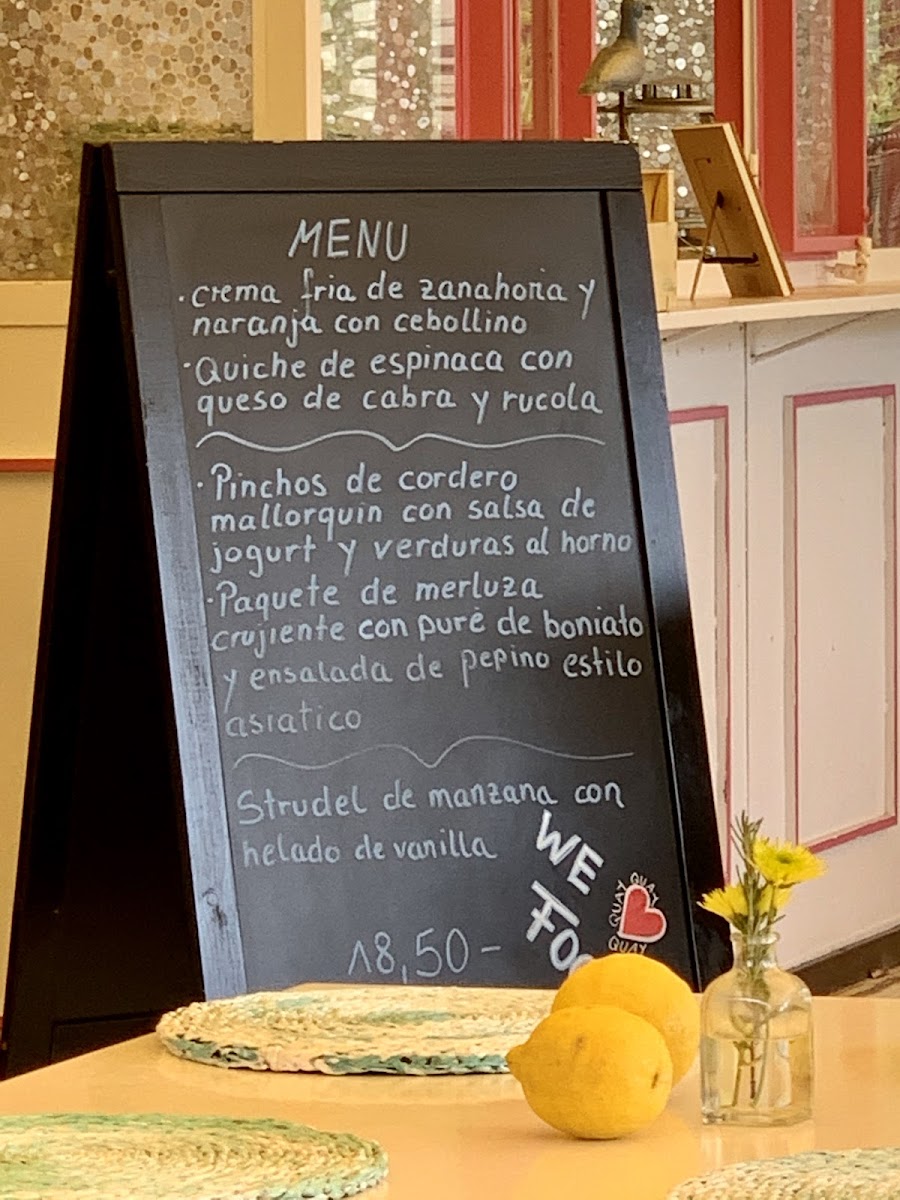 MENU
·crema fria de zanahoria y
naranja con cebollino
·Quiche de espinaca con
queso de cabra y rucola
·Pinchos de cordero
mallorquin con salsa de
jogurt y verduras al horno
·Paquete de merluza
crujiente con puré de boniato
y ensalada de pepino estilo
asiatico
Strudel de manzana con
helado de vanilla
18,50-
WE
QUAY QUAY
QUAY